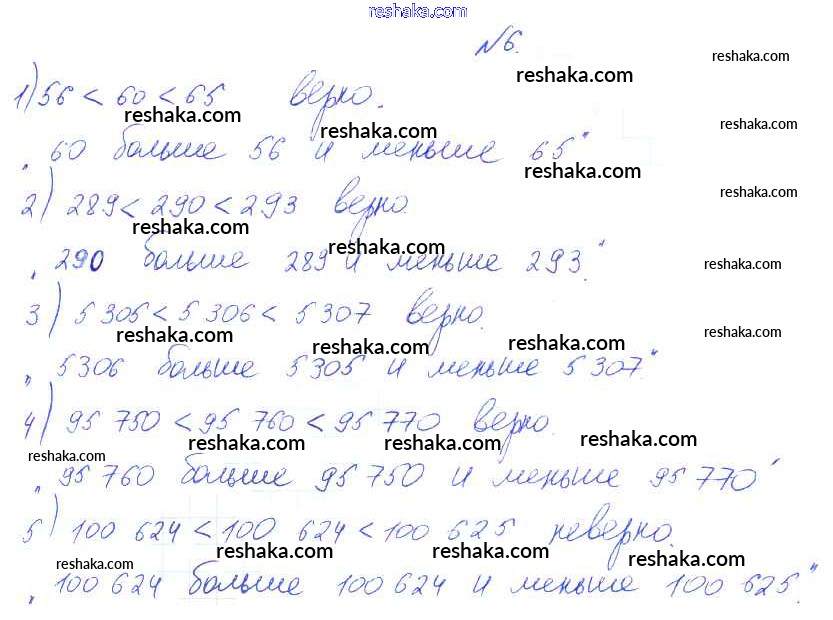 reshaka.com
№6.
reshaka.com reshaka.com
1) 56 < 60 < 65 верно.
reshaka.com reshaka.com reshaka.com
„60 больше 56 и меньше 65“
reshaka.com reshaka.com
2) 289 < 290 < 293 верно.
reshaka.com reshaka.com
„290 больше 289 и меньше 293.“
reshaka.com
3) 5 305 < 5 306 < 5 307 верно.
reshaka.com reshaka.com reshaka.com reshaka.com
„5306 больше 5305 и меньше 5307.“
4) 95 750 < 95 760 < 95 770 верно.
reshaka.com reshaka.com reshaka.com reshaka.com
„95 760 больше 95 750 и меньше 95 770“
5) 100 624 < 100 624 < 100 625 неверно.
reshaka.com reshaka.com reshaka.com reshaka.com
„100 624 больше 100 624 и меньше 100 625.“